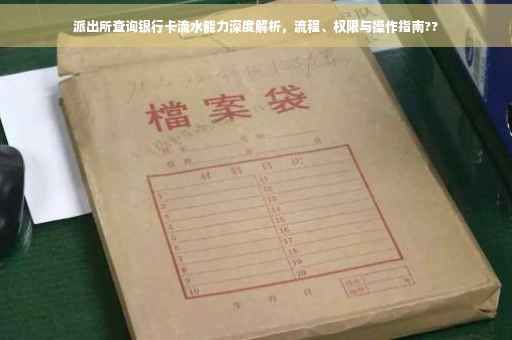 派出所查询银行卡流水能力深度解析，流程、权限与操作指南??
檔案袋
材料目次
1
2
3
4
5
6
7
8
9
10
11
12
13
14
15
16
17
18
19
20
年 月 日